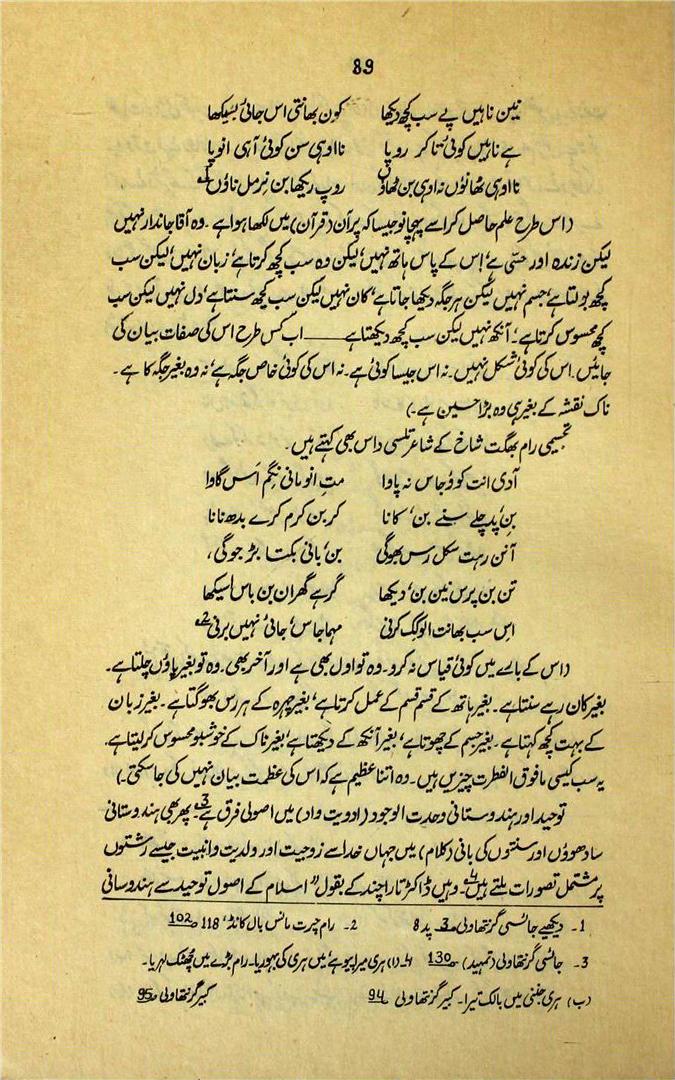 89
نین ناہیں پے سب کچھ دیکھا کون بھانتی اس جائی بسیکھا
ہے ناہیں کوئی تا کر روپا نا اوہی سن کوئی آہی انوپا
نا اوہی ٹھانوں نہ اوہی بن ٹھاؤں روپ ریکھا بن نرمل ناؤں 1
(اس طرح علم حاصل کر اسے پہچانو جیسا کہ پرآن (قرآن) میں لکھا ہوا ہے۔ وہ آقا جاندار نہیں
لیکن زندہ اور حسّی ہے، اس کے پاس ہاتھ نہیں، لیکن وہ سب کچھ کرتا ہے، زبان نہیں، لیکن سب
کچھ بولتا ہے، جسم نہیں لیکن ہر جگہ دیکھا جاتا ہے، کان نہیں لیکن سب کچھ سنتا ہے، دل نہیں لیکن سب
کچھ محسوس کرتا ہے، آنکھ نہیں لیکن سب کچھ دیکھتا ہے ـــــ اب کس طرح اس کی صفات بیان کی
جائیں۔ اس کی کوئی شکل نہیں۔ نہ اس جیسا کوئی ہے۔ نہ اس کی کوئی خاص جگہ ہے، نہ وہ بغیر جگہ کا ہے۔
ناک نقشہ کے بغیر ہی وہ بڑا حسین ہے۔)
تجسیمی رام بھگت شاخ کے شاعر تلسی داس بھی کہتے ہیں۔
آدی انت کوؤ جاس نہ پاوا مت انومانی نگم اَس گاوا
بن، پد چلے سنے بن، کانا کر بن کرم کرے بدھ نانا
آنن رہت سکل رس بھوگی بن، بانی بکتا بڑ جوگی،
تن بن پرس نین بن، دیکھا گرہے گھران بن باس اسیکھا
اس سب بھانت الوکک کرنی مہما جاس، جائی نہیں برنی 2
(اس کے بارے میں کوئی قیاس نہ کرو۔ وہ تو اول بھی ہے اور آخر بھی۔ وہ تو بغیر پاؤں چلتا ہے۔
بغیر کان رہے سنتا ہے۔ بغیر ہاتھ کے قسم قسم کے عمل کرتا ہے، بغیر چہرہ کے ہر رس بھوگتا ہے۔ بغیر زبان
کے بہت کچھ کہتا ہے۔ بغیر جسم کے چھوتا ہے، بغیر آنکھ کے دیکھتا ہے، بغیر ناک کے خوشبو محسوس کر لیتا ہے۔
یہ سب کیسی مافوق الفطرت چیزیں ہیں۔ وہ اتنا عظیم ہے کہ اس کی عظمت بیان نہیں کی جا سکتی۔)
توحید اور ہندوستانی وحدت الوجود (ادویت واد) میں اصولی فرق ہے 3۔ پھر بھی ہندوستانی
سادھوؤں اور سنتوں کی بانی (کلام) میں جہاں خدا سے زوجیت اور ولدیت و ابنیت جیسے رشتوں
پر مشتمل تصورات ملتے ہیں 4۔ وہیں ڈاکٹر تارا چند کے بقول "اسلام کے اصول توحید سے ہندوسانی
1۔ دیکھیے جائسی گرنتھاولی ص 3 پد 8 2۔ رام چرت مانس بال کانڈ، 118 ص 102
3۔ جائسی گرنتھاولی (تمہید) ص 130 4۔ (ا) ہری میرا پیو ہے، میں ہری کی بہوریا۔ رام بڑے میں چھٹک لہریا۔
(ب) ہری جننی میں بالک تیرا۔ کبیر گرنتھاولی ص 94 کبیر گرنتھاولی ص 95